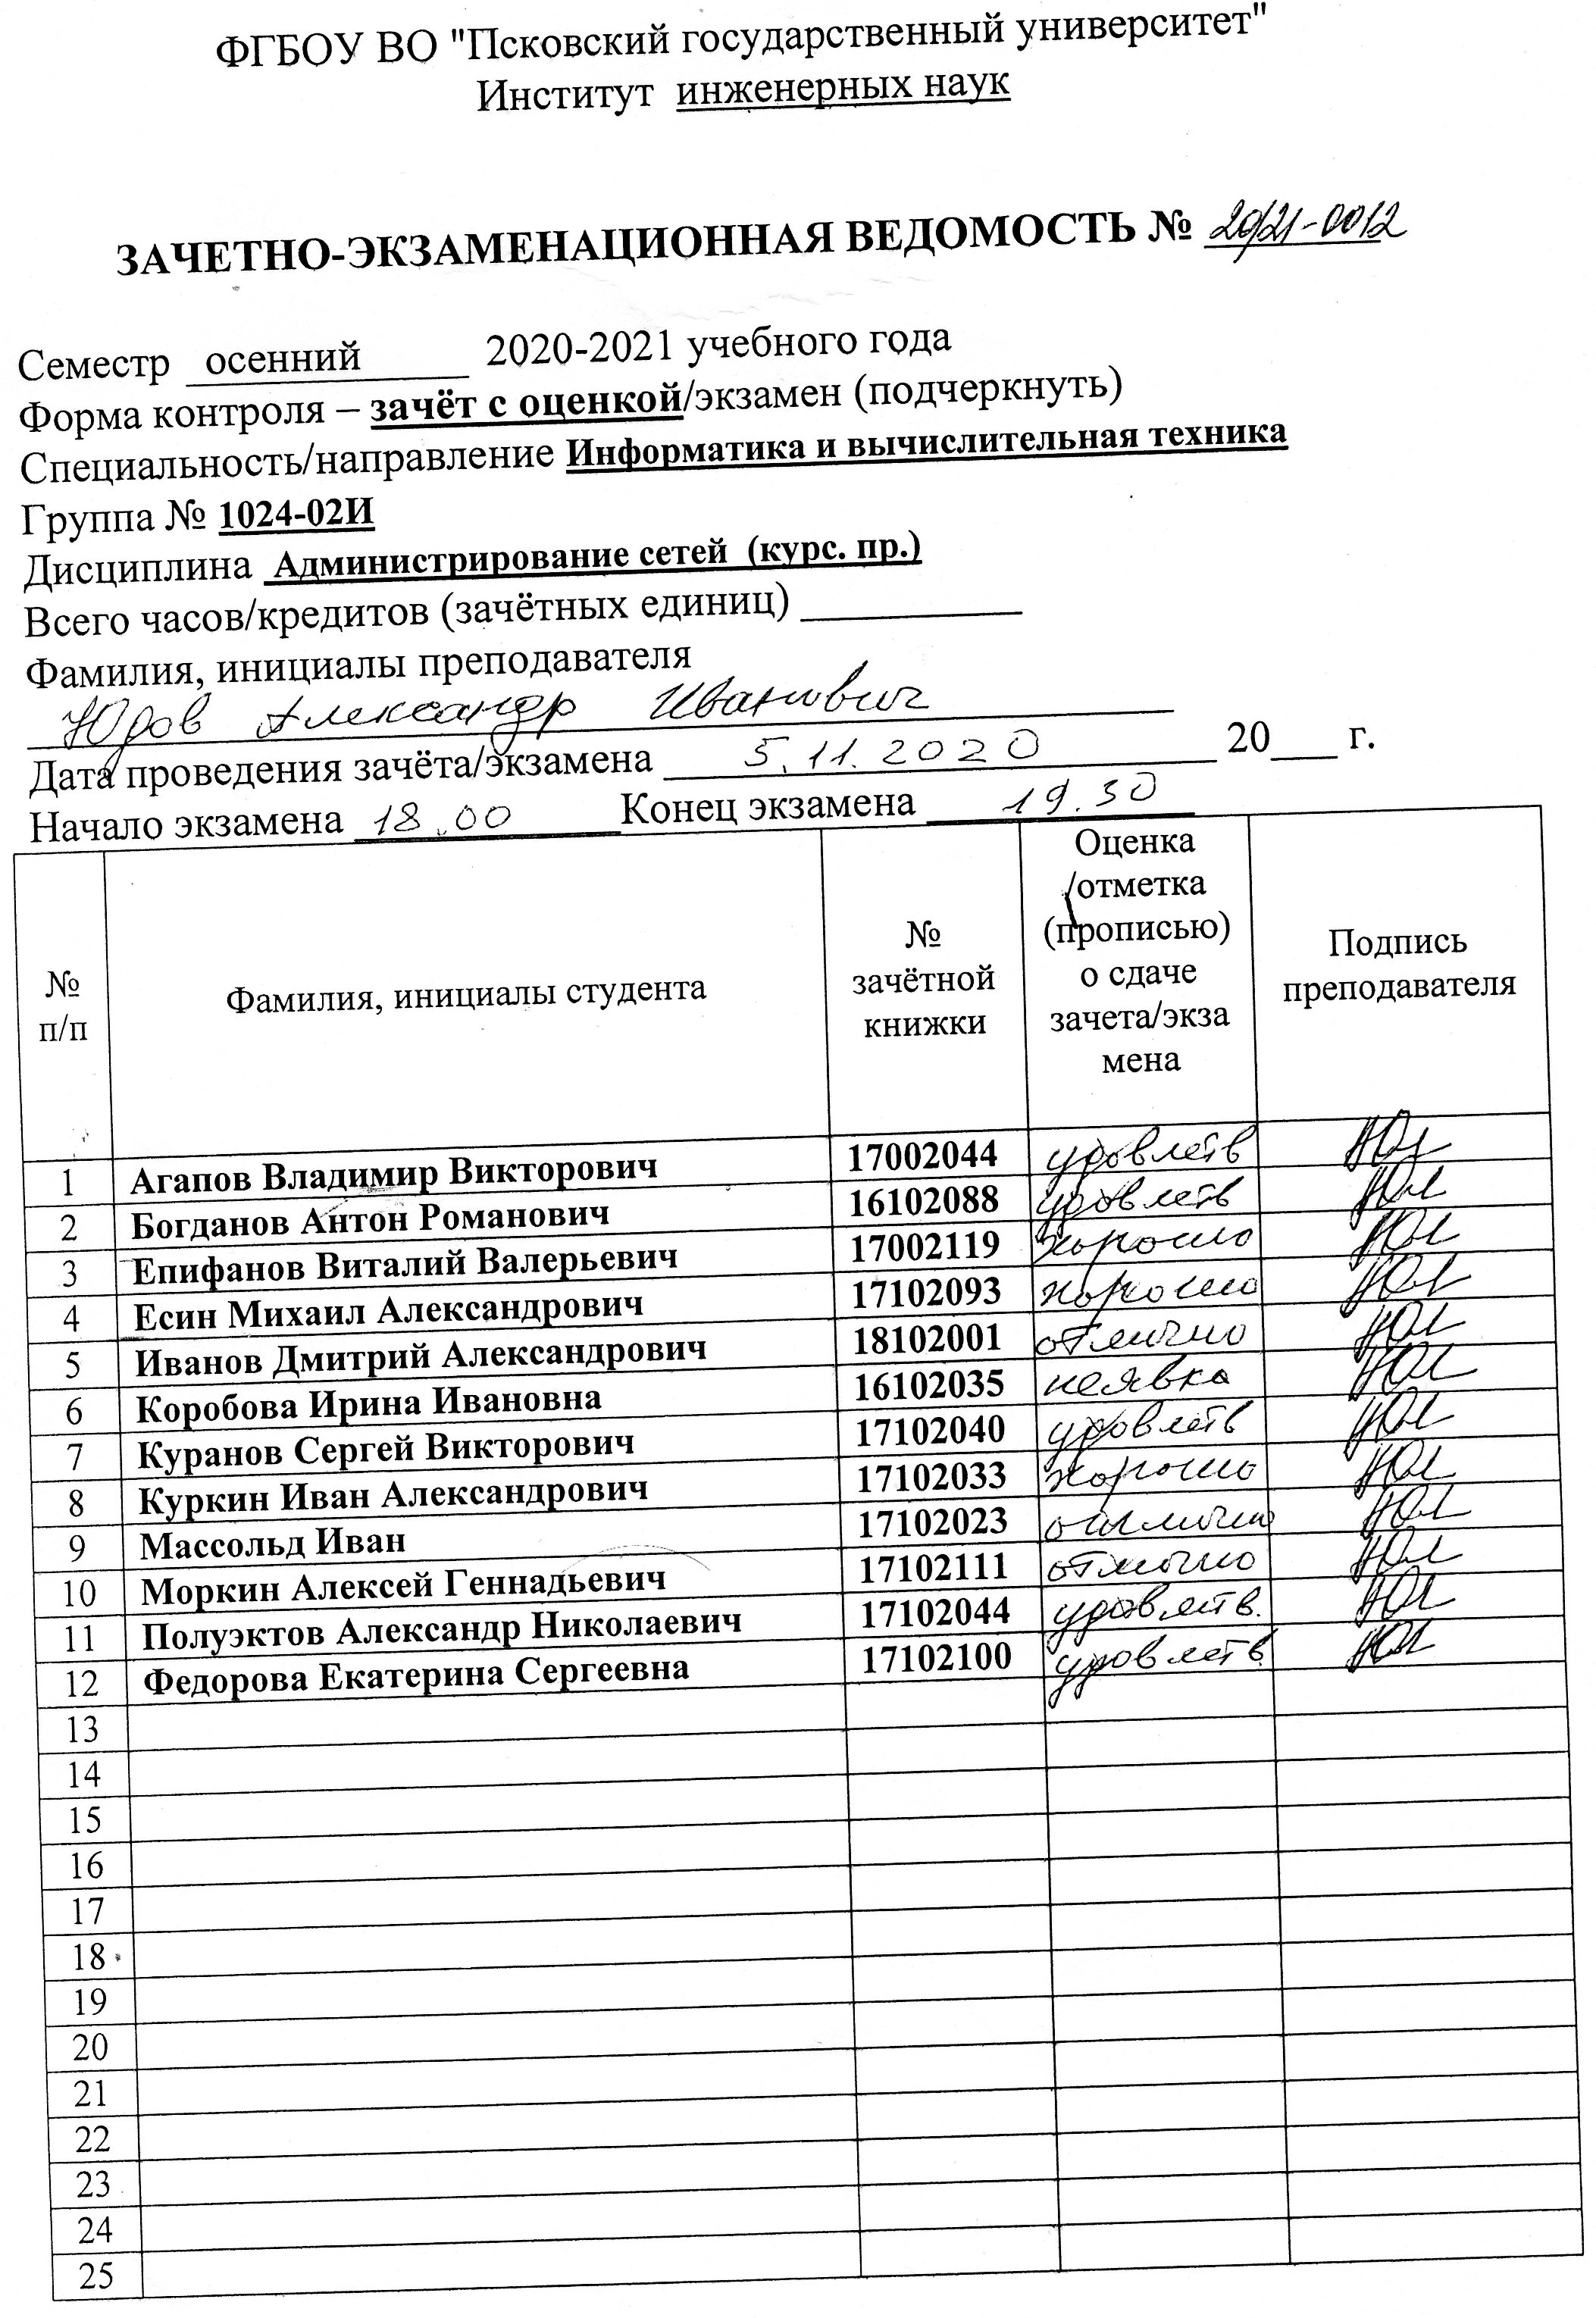 ФГБОУ ВО "Псковский государственный университет"
Институт инженерных наук
ЗАЧЕТНО-ЭКЗАМЕНАЦИОННАЯ ВЕДОМОСТЬ № 20/21-0012
Семестр осенний 2020-2021 учебного года
Форма контроля – зачёт с оценкой/экзамен (подчеркнуть)
Специальность/направление Информатика и вычислительная техника
Группа № 1024-02И
Дисциплина Администрирование сетей (курс. пр.)
Всего часов/кредитов (зачётных единиц)
Фамилия, инициалы преподавателя
Юров Александр Иванович
Дата проведения зачёта/экзамена 5.11.2020 20___ г.
Начало экзамена 18.00 Конец экзамена 19.30
№ п/п Фамилия, инициалы студента № зачётной книжки Оценка /отметка (прописью) о сдаче зачета/экза мена Подпись преподавателя
1 Агапов Владимир Викторович 17002044 удовлетв
2 Богданов Антон Романович 16102088 удовлетв
3 Епифанов Виталий Валерьевич 17002119 хорошо
4 Есин Михаил Александрович 17102093 хорошо
5 Иванов Дмитрий Александрович 18102001 отлично
6 Коробова Ирина Ивановна 16102035 неявка
7 Куранов Сергей Викторович 17102040 удовлетв
8 Куркин Иван Александрович 17102033 хорошо
9 Массольд Иван 17102023 отлично
10 Моркин Алексей Геннадьевич 17102111 отлично
11 Полуэктов Александр Николаевич 17102044 удовлетв.
12 Федорова Екатерина Сергеевна 17102100 удовлетв.
13
14
15
16
17
18
19
20
21
22
23
24
25